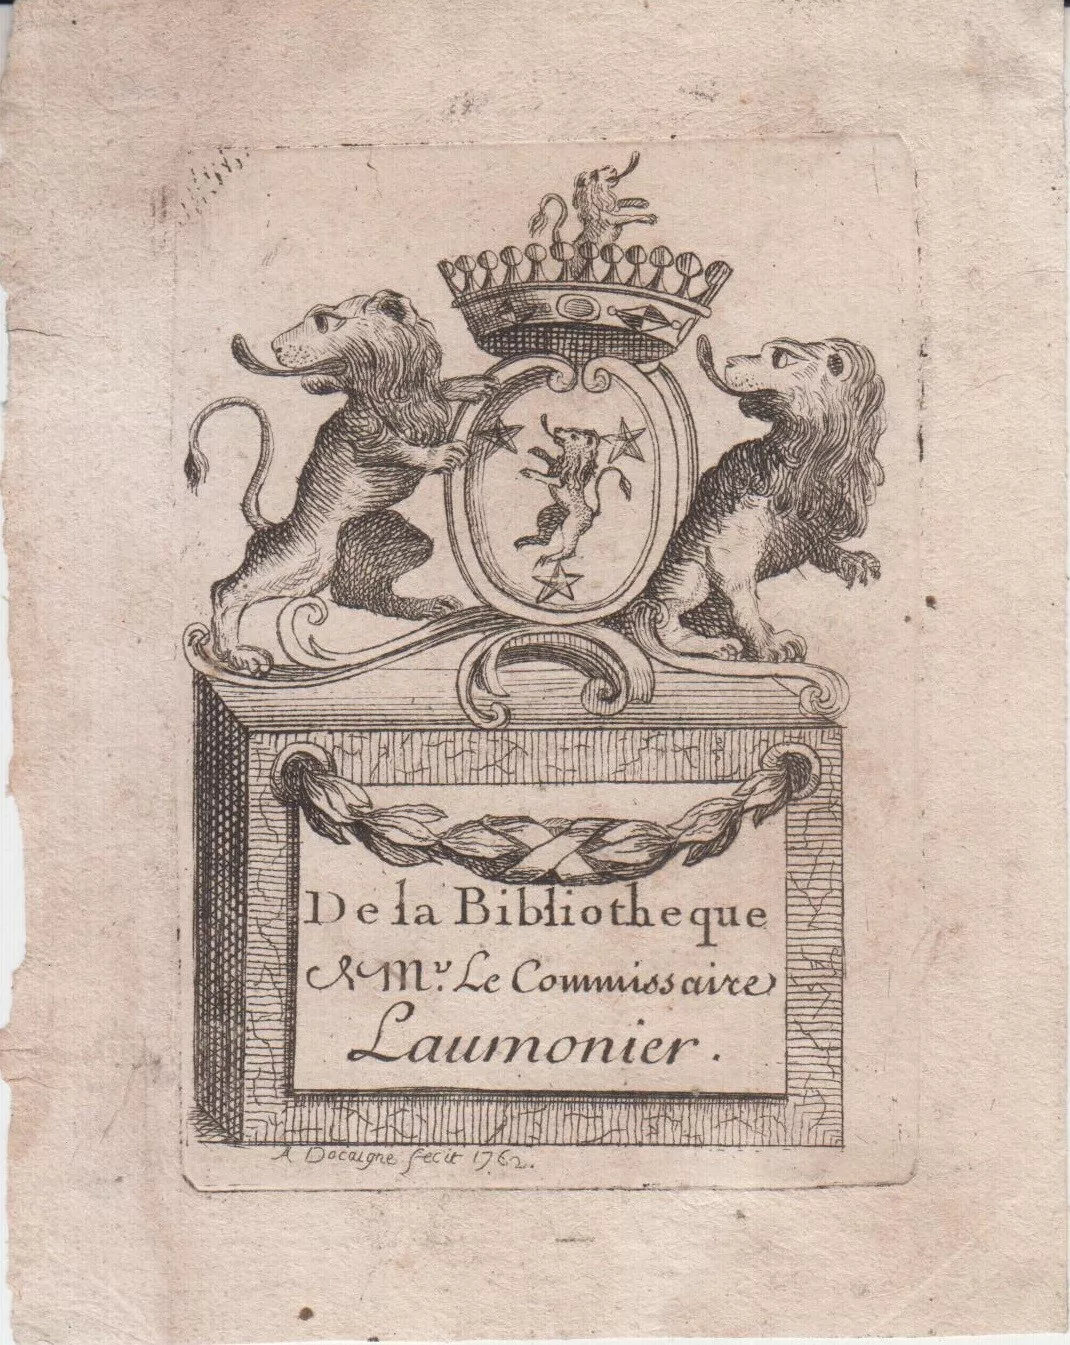 De la Bibliotheque
de Mr. Le Commissaire
Laumonier.
A Docaigne fecit 1762.